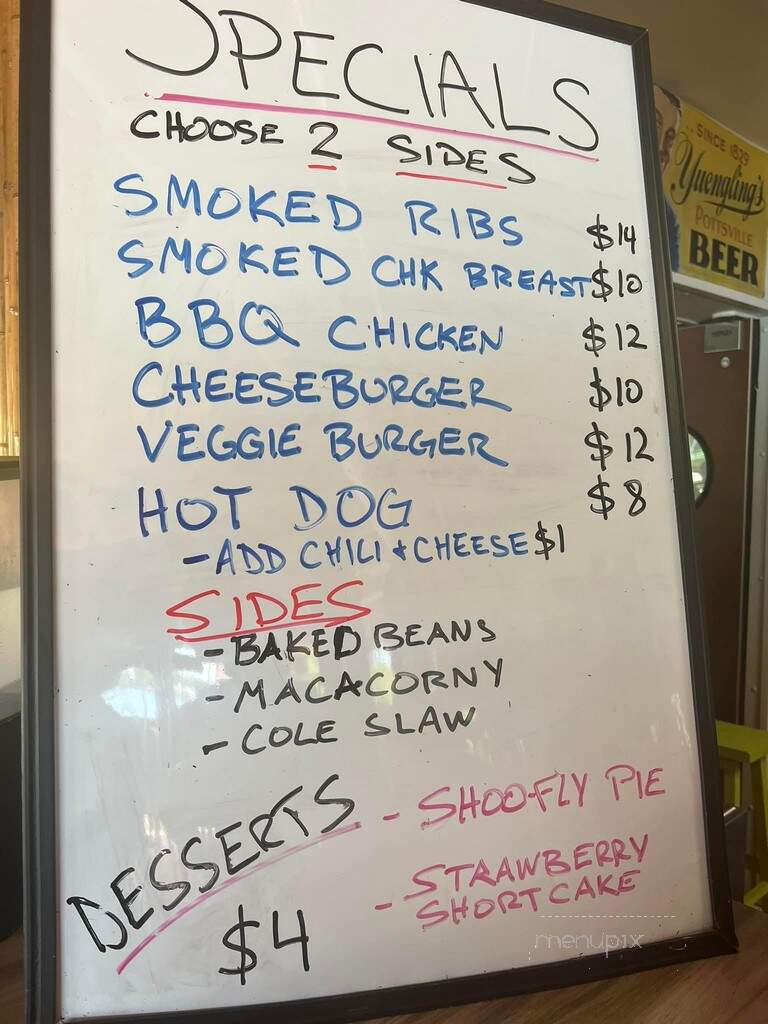 SPECIALS
CHOOSE 2 SIDES
SMOKED RIBS $14
SMOKED CHK BREAST $10
BBQ CHICKEN $12
CHEESEBURGER $10
VEGGIE BURGER $12
HOT DOG $8
- ADD CHILI + CHEESE $1
SIDES
- BAKED BEANS
- MACACORNY
- COLE SLAW
DESSERTS
$4
- SHOOFLY PIE
- STRAWBERRY
SHORTCAKE
SINCE 1829
Yuengling's
POTTSVILLE
BEER
menupix